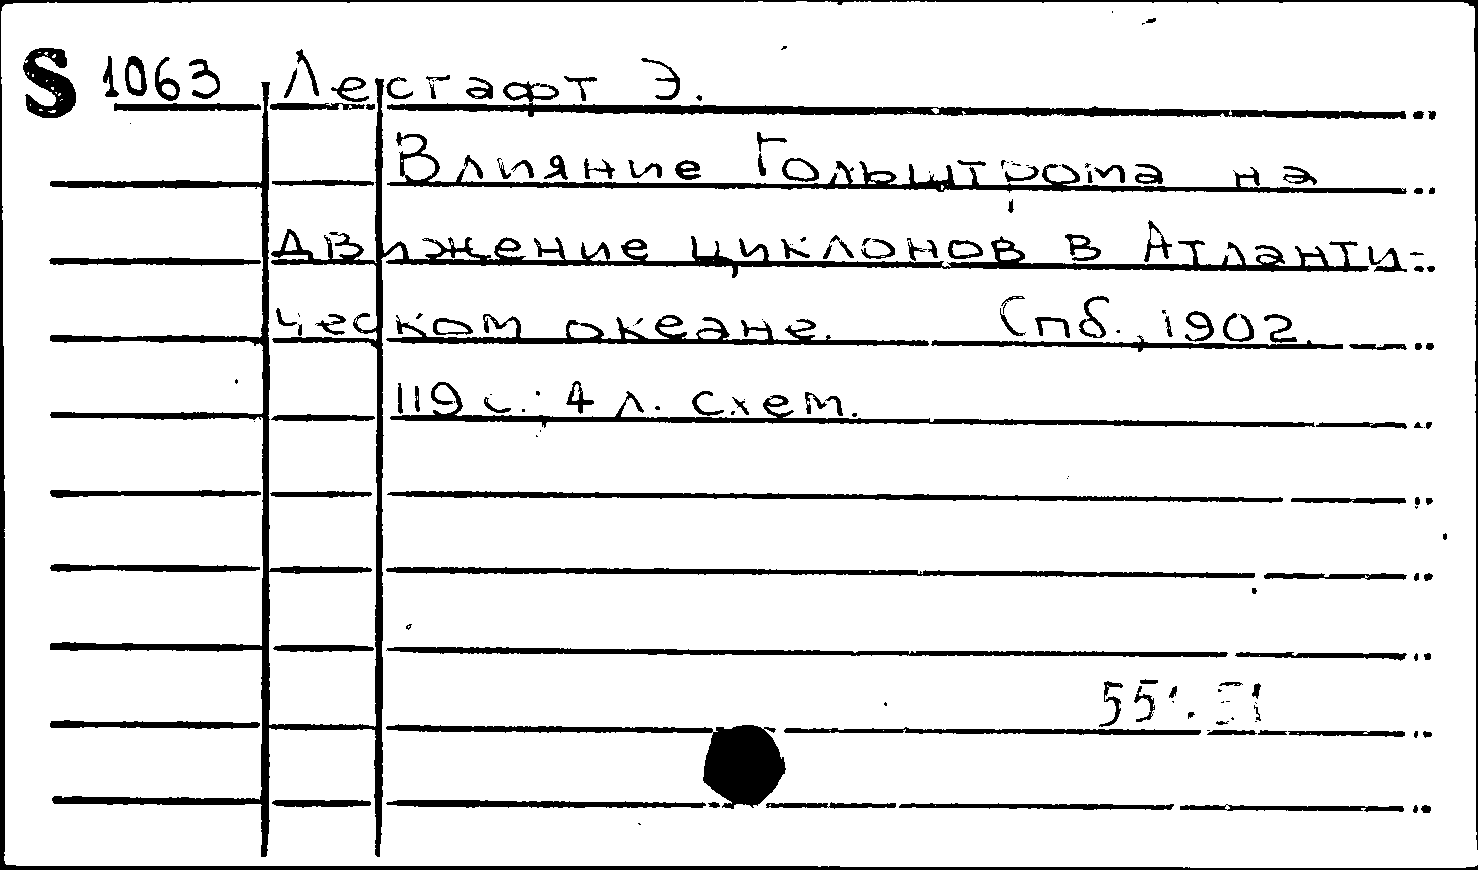 S 1063 Лесгафт Э.
Влияние Гольштрома на
движение циклонов в Атланти-
ческом океане. Спб., 1902.
119 с.; 4 л. схем.
551.51